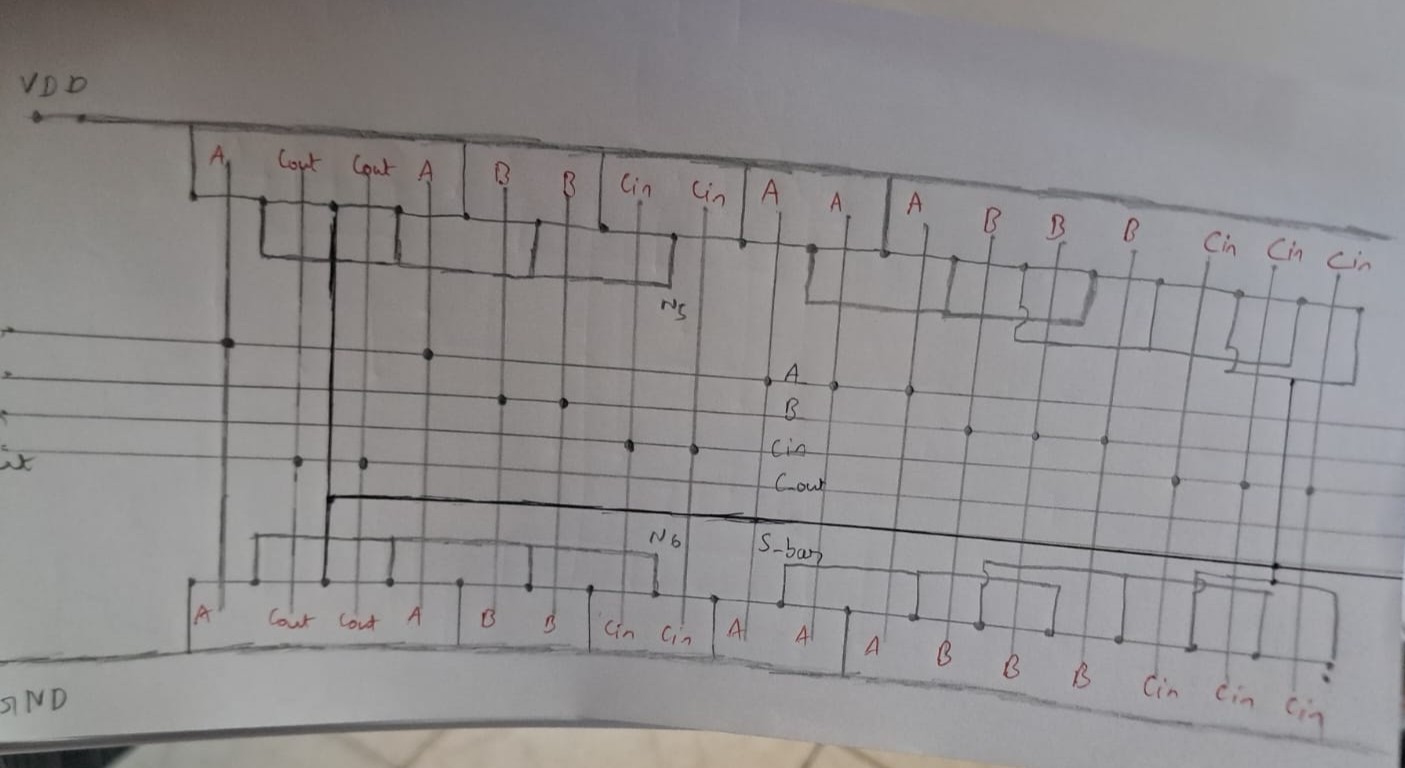 VDD
A Cout Cout A B B Cin Cin A A A B B B Cin Cin Cin
N5
A
B
Cin
Cout
N6 S-bar
A Cout Cout A B B Cin Cin A A A B B B Cin Cin Cin
GND